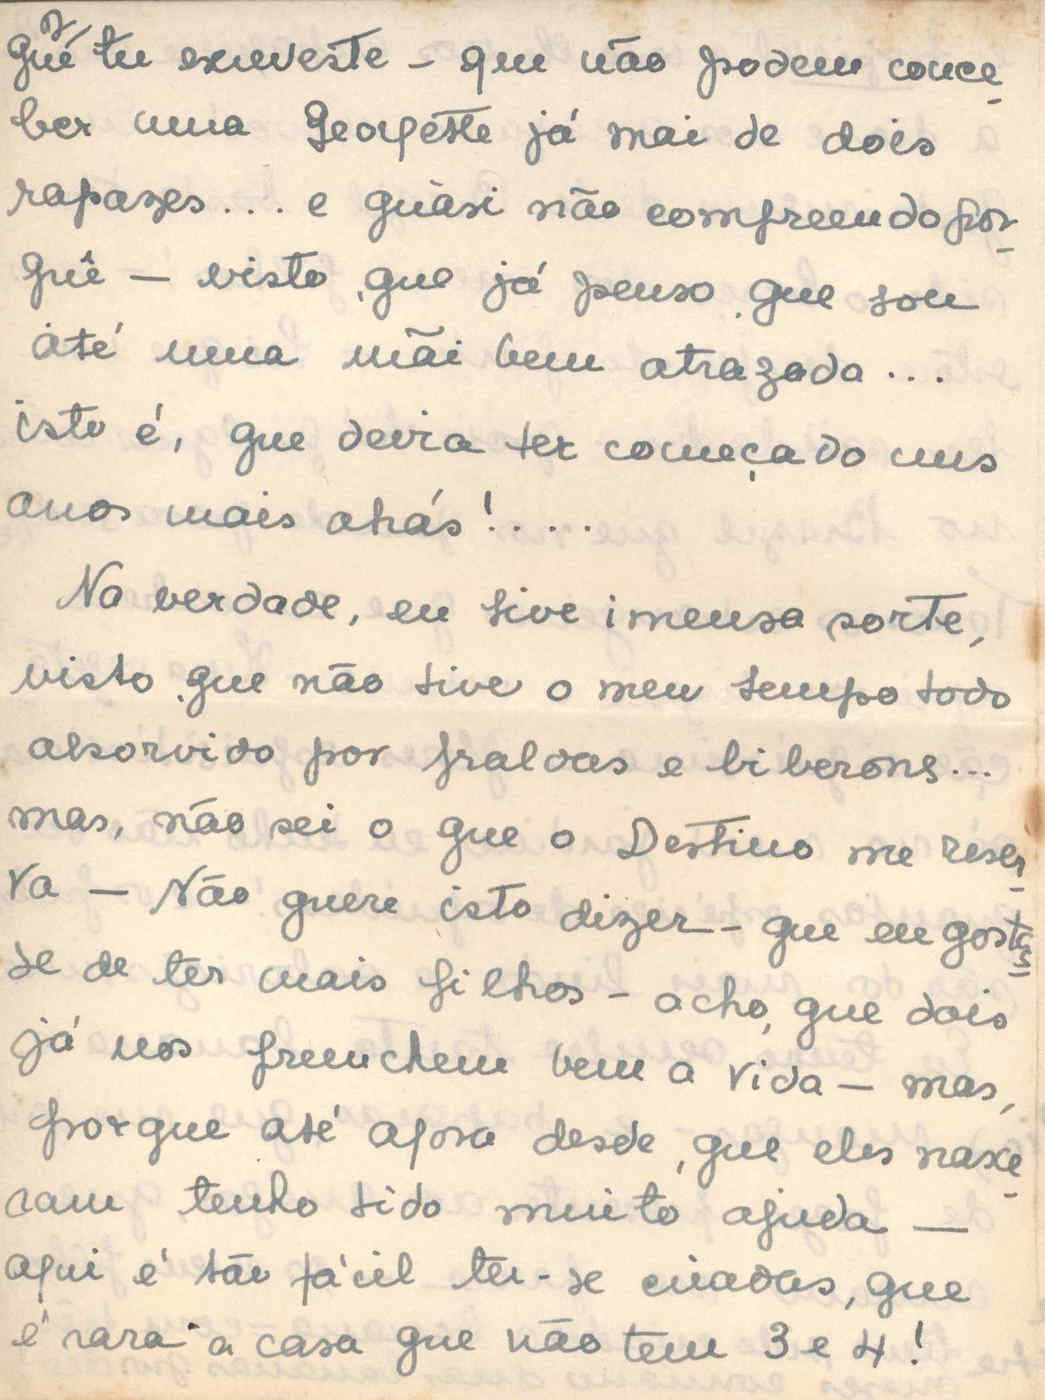 que tu escreveste - que não podem conce-
ber uma Georgette já mãi de dois
rapazes... e quási não compreendo por-
quê — visto, que já penso que sou
até uma mãi bem atrazada...
isto é, que devia ter começado uns
anos mais atrás!....
Na verdade, eu tive imensa sorte,
visto que não tive o meu tempo todo
absorvido por fraldas e biberons...
mas, não sei o que o Destino me reser-
va — Não quere isto dizer - que eu gostas-
se de ter mais filhos - acho, que dois
já nos preenchem bem a vida — mas,
porque até agora desde, que eles nasce-
ram tenho tido muito ajuda —
aqui é tão fácil ter-se criadas, que
é rara a casa que não tem 3 e 4!